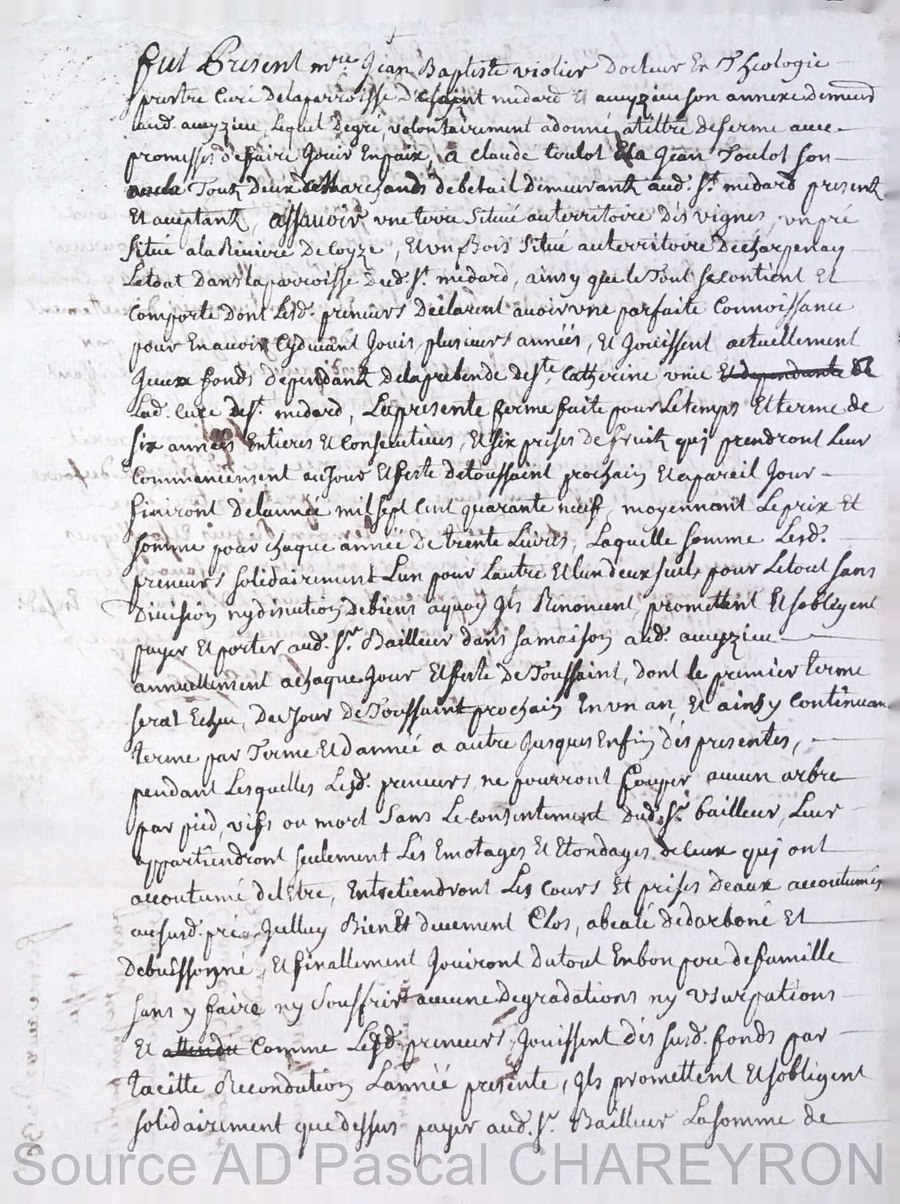 fut Present mre Jean Baptiste violier Docteur En Theologie
prestre Curé delaparroisse de saint medard Et aveyzieu son annexe demeurt
aud. aveyzieu, Lequel degré, volontairement adonné atittre deferme avec
promesse defaire Jouir Enpaix, a Claude toulot Jean Toulot son
Tout deux Marchands debetail demeurant aud. St. medard present
Et aceptant, assavoir une terre Situé auterritoire des vignes, un pré
Situé alaRiviere De Coyze, Et un Bois Situé auterritoire De
Letout Dans laparroisse dud. St. medard, ainsy que le Tout secontient Et
Comporte dont Lesd. preneurs declarent avoir une parfaite Connoissance
pour Enavoir Cydevant Jouis plusieurs années, Et Jouissent actuellement
Iceux fonds dependant delaprebende de Ste. Catherine unie Et dependante
Lad. cure de St. medard, Lapresente ferme faite pour Letemps Et terme de
six années Entieres Et Consecutives, Et six prises de fruit qui prendront Leur
Commencement au Jour Et feste detoussaint prochain Et apareil Jour
finiront delannée mil sept Cent quarante neuf, moyennant Leprix Et
somme pour chaque année De trente Livres, Laquelle somme Lesd.
preneurs solidairement Lun pour Lautre Et lun deux seul pour Letout sans
Division ny discution debiens aquoy Ils Renoncent, promettent Et sobligent
payer Et porter aud. Sr. Bailleur dans samaison aud. aveyzieu
annuellement achaque Jour Et feste de Toussaint, dont le premier terme
serat Echu, Du Jour de Toussaint prochain En un an, Et ainsy Continuant
terme par Terme Et dannée a autre Jusques Enfin des presentes,
pendant Lesquelles Lesd. preneurs ne pourront Couper aucun arbre
par pied, vifs ou mort Sans Le consentement Dud. Sr. bailleur, Leur
appartiendront seulement Les Emotages Et Etondages de ceux qui ont
accoutumé del Etre, Entretiendront Les Cours Et prises deaux accoutumés
ausurd. pré, Icelluy Bien Et duement Clos, dedarboné Et
debuissonné, Et finallement Jouiront dutout Enbon pere defamille
sans y faire ny souffrir aucune Degradations ny usurpations
Et attendu Comme Lesd. preneurs Jouissent des surd. fonds par
tacitte Reconduction Lannée presente, Ils promettent Et sobligent
solidairement que dessus payer aud. Sr. Bailleur Lasomme de
Source AD Pascal CHAREYRON